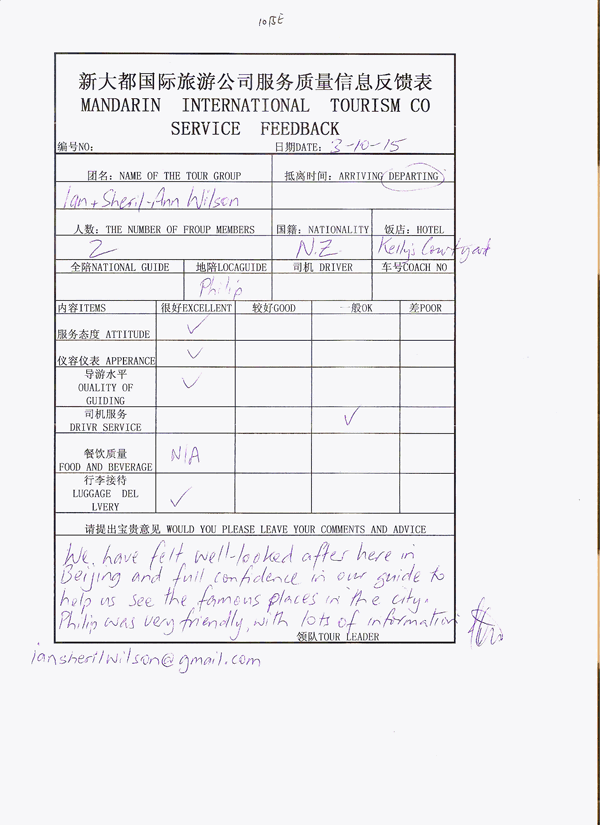 新大都国际旅游公司服务质量信息反馈表
MANDARIN INTERNATIONAL TOURISM CO
SERVICE FEEDBACK
编号NO: 日期DATE: 3-10-15
团名: NAME OF THE TOUR GROUP 抵离时间: ARRIVING DEPARTING
Ian + Sheril-Ann Wilson
人数: THE NUMBER OF FROUP MEMBERS 国籍: NATIONALITY 饭店: HOTEL
2 N.Z Kelly's Courtyard
全陪NATIONAL GUIDE 地陪LOCAGUIDE 司机 DRIVER 车号COACH NO
Philip
内容ITEMS 很好EXCELLENT 较好GOOD 一般OK 差POOR
服务态度 ATTITUDE ✓
仪容仪表 APPERANCE ✓
导游水平
OUALITY OF ✓
GUIDING
司机服务 ✓
DRIVR SERVICE
餐饮质量 N/A
FOOD AND BEVERAGE
行李接待
LUGGAGE DEL ✓
LVERY
请提出宝贵意见 WOULD YOU PLEASE LEAVE YOUR COMMENTS AND ADVICE
We have felt well-looked after here in
Beijing and full confidence in our guide to
help us see the famous places in the city.
Philip was very friendly, with lots of information
领队TOUR LEADER
iansherilwilson@gmail.com